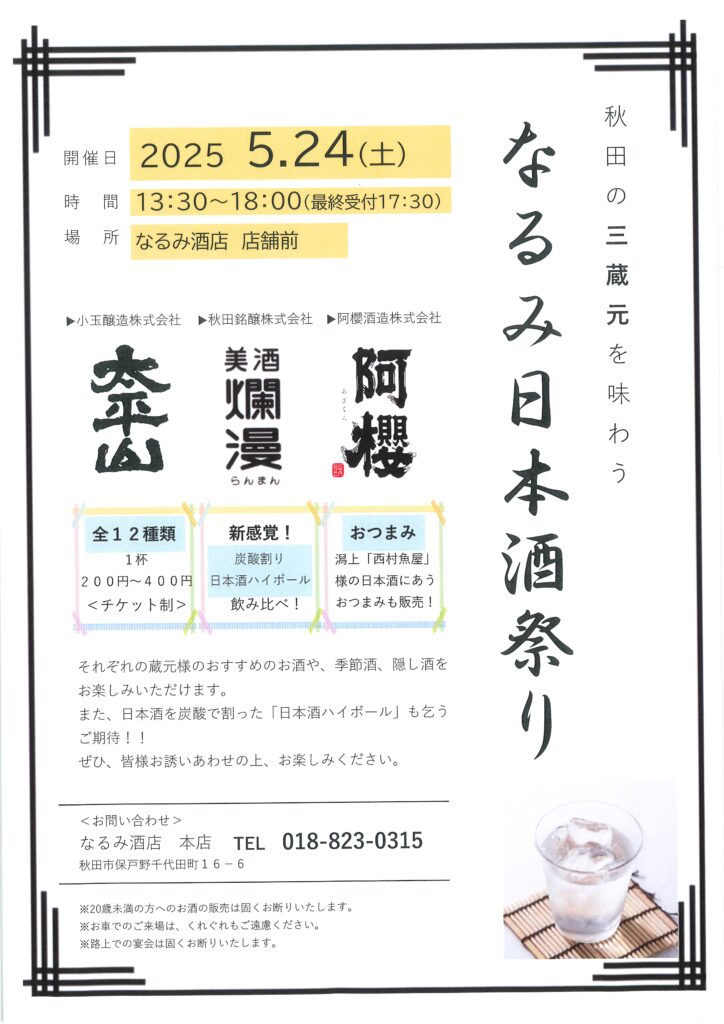 秋田の三蔵元を味わう
なるみ日本酒祭り
開催日 2025 5.24(土)
時　間 13:30～18:00(最終受付17:30)
場　所 なるみ酒店　店舗前
▶小玉醸造株式会社 ▶秋田銘醸株式会社 ▶阿櫻酒造株式会社
太平山
美酒
爛漫
らんまん
阿櫻
おざくら
全１２種類
１杯
２００円～４００円
＜チケット制＞
新感覚！
炭酸割り
日本酒ハイボール
飲み比べ！
おつまみ
潟上「西村魚屋」
様の日本酒にあう
おつまみも販売！
それぞれの蔵元様のおすすめのお酒や、季節酒、隠し酒を
お楽しみいただけます。
また、日本酒を炭酸で割った「日本酒ハイボール」も乞う
ご期待！！
ぜひ、皆様お誘いあわせの上、お楽しみください。
＜お問い合わせ＞
なるみ酒店　本店　TEL　018-823-0315
秋田市保戸野千代田町１６－６
※20歳未満の方へのお酒の販売は固くお断りいたします。
※お車でのご来場は、くれぐれもご遠慮ください。
※路上での宴会は固くお断りいたします。